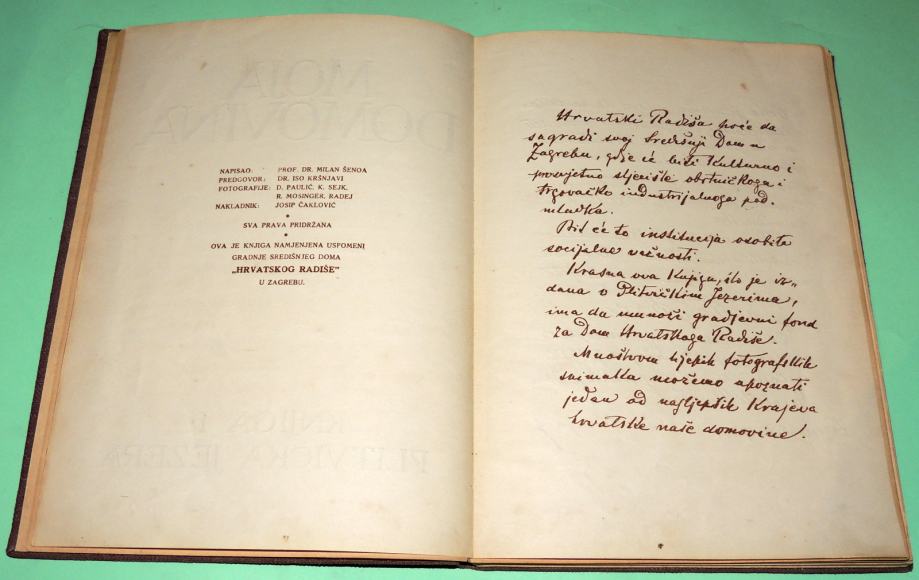 NAPISAO: PROF. DR. MILAN ŠENOA
PREDGOVOR: DR. ISO KRŠNJAVI
FOTOGRAFIJE: D. PAULIĆ, K. SEJK,
R. MOSINGER, RADEJ
NAKLADNIK: JOSIP ČAKLOVIĆ
SVA PRAVA PRIDRŽANA
OVA JE KNJIGA NAMJENJENA USPOMENI
GRADNJE SREDIŠNJEG DOMA
„HRVATSKOG RADIŠE"
U ZAGREBU.
MOJA
DOMOVINA
KNJIGA I.
PLITVIČKA JEZERA
Hrvatski Radiša hoće da
sagradi svoj Središnji Dom u
Zagrebu, gdje će biti kulturno i
prosvjetno stjecište obrtničkoga i
trgovačko industrijalnoga pod„
mladka.
Bit će to institucija osobite
socijalne važnosti.
Krasna ova knjiga, što je iz„
dana o Plitvičkim Jezerima,
ima da umnoži gradjevni fond
za Dom Hrvatskoga Radiše.
Mnoštvom lijepih fotografskih
snimaka možemo upoznati
jedan od najljepših krajeva
hrvatske naše domovine.